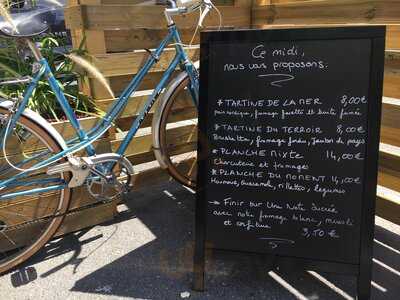 Ce midi,
nous vous proposons:
* TARTINE DE LA MER 8,00€
pain nordique, fromage fouetté et truite fumée
* TARTINE DU TERROIR 8,00€
Bruschetta, fromage frais, Jambon de pays
* PLANCHE MIXTE 14,00€
Charcuterie et fromages
* PLANCHE DU MOMENT 14,00€
Houmous, rillettes, légumes
* Finir sur Une Note Sucrée
avec notre fromage blanc, muesli
et confiture 3,50€